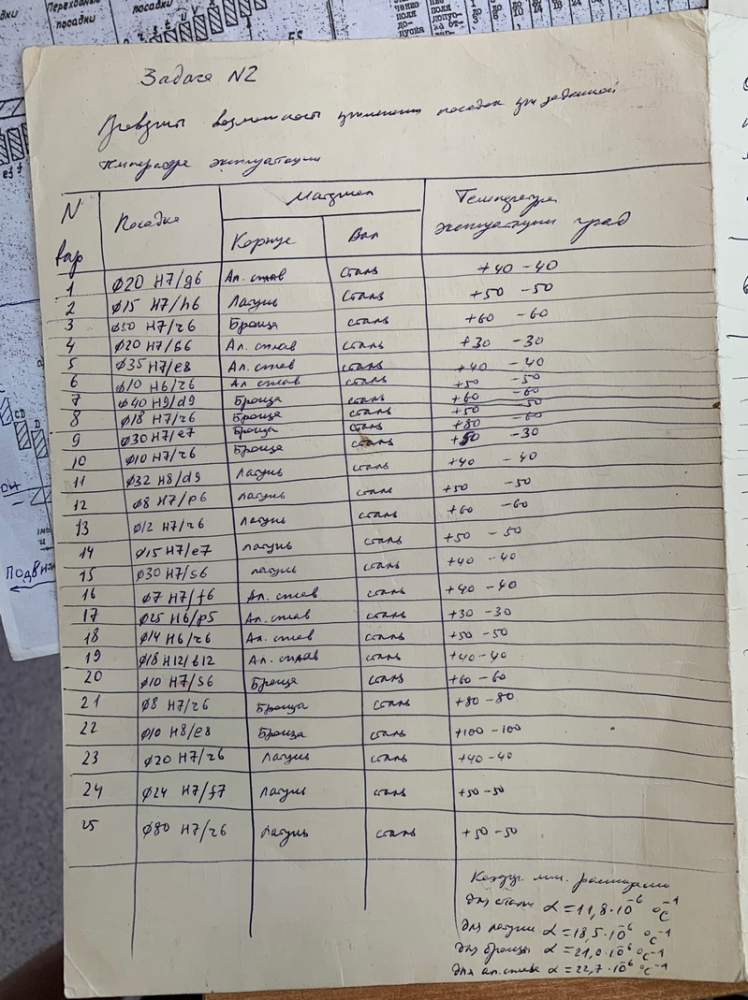 Переходные посадки
посадки
Задача N2
Проверить возможность применения посадок при заданной
температуре эксплуатации
N вар Посадка Материал Температура эксплуатации град
Корпус Вал
1 ø20 H7/g6 Ал. сплав сталь +40 -40
2 ø15 H7/h6 Латунь сталь +50 -50
3 ø50 H7/r6 Бронза сталь +60 -60
4 ø20 H7/s6 Ал. сплав сталь +30 -30
5 ø35 H7/e8 Ал. сплав сталь +40 -40
6 ø10 H6/r6 Ал сплав сталь +50 -50
7 ø40 H9/d9 Бронза сталь +60 -60
8 ø18 H7/r6 Бронза сталь +50 -50
9 ø30 H7/e7 Бронза сталь -60
10 ø10 H7/r6 Бронза сталь +50 -30
11 ø32 H8/d9 Латунь сталь +40 -40
12 ø8 H7/p6 Латунь сталь +50 -50
13 ø12 H7/r6 Латунь сталь +60 -60
14 ø15 H7/e7 Латунь сталь +50 -50
15 ø30 H7/s6 Латунь сталь +40 -40
16 ø7 H7/f6 Ал. сплав сталь +40 -40
17 ø25 H6/p5 Ал. сплав сталь +30 -30
18 ø14 H6/r6 Ал. сплав сталь +50 -50
19 ø18 H12/b12 Ал. сплав сталь +40 -40
20 ø10 H7/s6 Бронза сталь +60 -60
21 ø8 H7/r6 Бронза сталь +80 -80
22 ø10 H8/e8 Бронза сталь +100 -100
23 ø20 H7/r6 Латунь сталь +40 -40
24 ø24 H7/f7 Латунь сталь +50 -50
25 ø80 H7/r6 Латунь сталь +50 -50
Коэфф. лин. расширения
для стали α = 11,8·10⁻⁶ °C⁻¹
для латуни α = 18,5·10⁻⁶ °C⁻¹
для бронзы α = 21,0·10⁻⁶ °C⁻¹
для ал. сплава α = 22,7·10⁻⁶ °C⁻¹